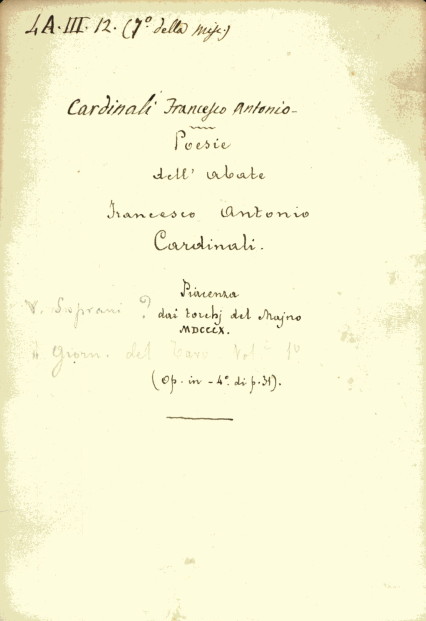 4A·III·12. (7º della misc.)
Cardinali Francesco Antonio-
Poesie
dell' abate
Francesco Antonio
Cardinali.
Piacenza
V. Soprani ?
dai torchj del Majno
MDCCCX.
Giorn. del Taro Vol. 1º
(Op. in-4º. di p. 31).